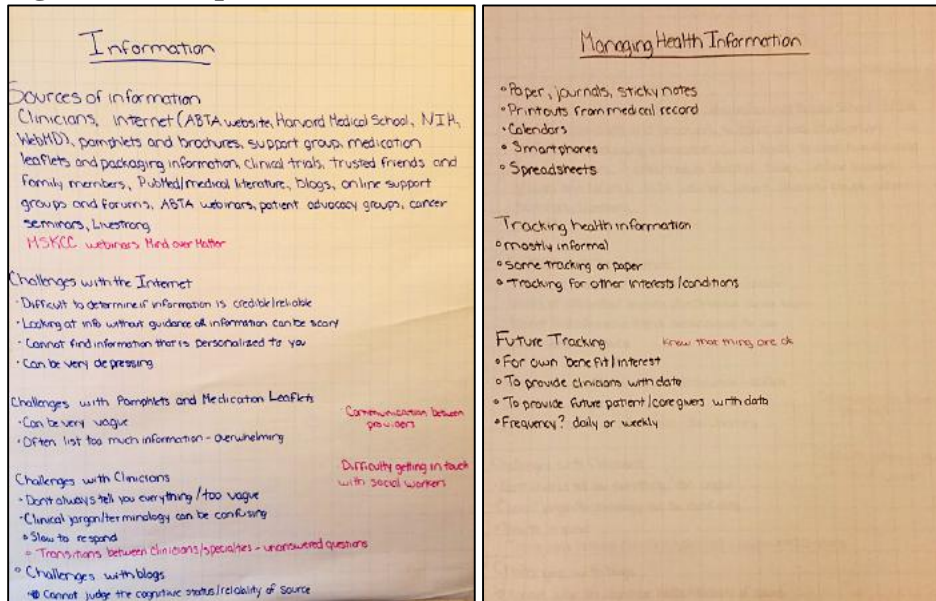 Information
Sources of information
Clinicians, internet (ABTA website, Harvard Medical School, NIH,
WebMD), pamphlets and brochures, support group, medication
leaflets and packaging information, clinical trials, trusted friends and
family members, PubMed/medical literature, blogs, online support
groups and forums, ABTA webinars, patient advocacy groups, cancer
seminars, Livestrong
MSKCC webinars Mind over Matter
Challenges with the Internet
· Difficult to determine if information is credible/reliable
· Looking at info without guidance of information can be scary
· Cannot find information that is personalized to you
· Can be very depressing
Challenges with Pamphlets and Medication Leaflets
· Can be very vague
· Often list too much information - overwhelming
Communication between
providers
Difficulty getting in touch
with social workers
Challenges with Clinicians
· Don't always tell you everything / too vague
· Clinical jargon/terminology can be confusing
· Slow to respond
· Transitions between clinicians/specialties - unanswered questions
· Challenges with blogs
Cannot judge the cognitive status/reliability of source
Managing Health Information
· Paper, journals, sticky notes
· Printouts from medical record
· Calendars
· Smartphones
· Spreadsheets
Tracking health information
· mostly informal
· some tracking on paper
· Tracking for other interests/conditions
Future Tracking
Know that thing are ok
· For own benefit/interest
· To provide clinicians with data
· To provide future patient/caregivers with data
· Frequency? daily or weekly